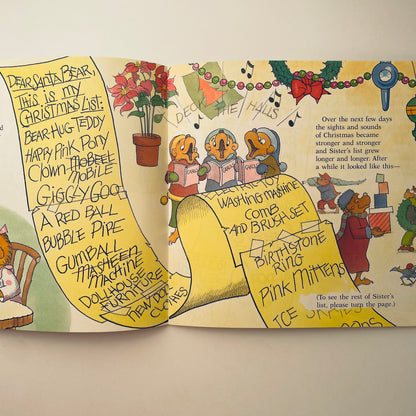 DEAR SANTA BEAR,
THIS IS MY
CHRISTMAS LIST:
BEAR HUG TEDDY
HAPPY PINK PONY
CLOWN MOBEEL
MOBILE
GIGGLY GOO
A RED BALL
BUBBLE PIPE
GUMBALL
MASHEEN
MACHINE
DOLLHOUSE
FURNITURE
NEW DOLL
CLOTHES
DECK THE HALLS
WASHING MACHINE
COMB
AND BRUSH SET
BIRTHSTONE
RING
PINK MITTENS
ICE SKATES
Over the next few days
the sights and sounds
of Christmas became
stronger and stronger
and Sister's list grew
longer and longer. After
a while it looked like this—
(To see the rest of Sister's
list, please turn the page.)